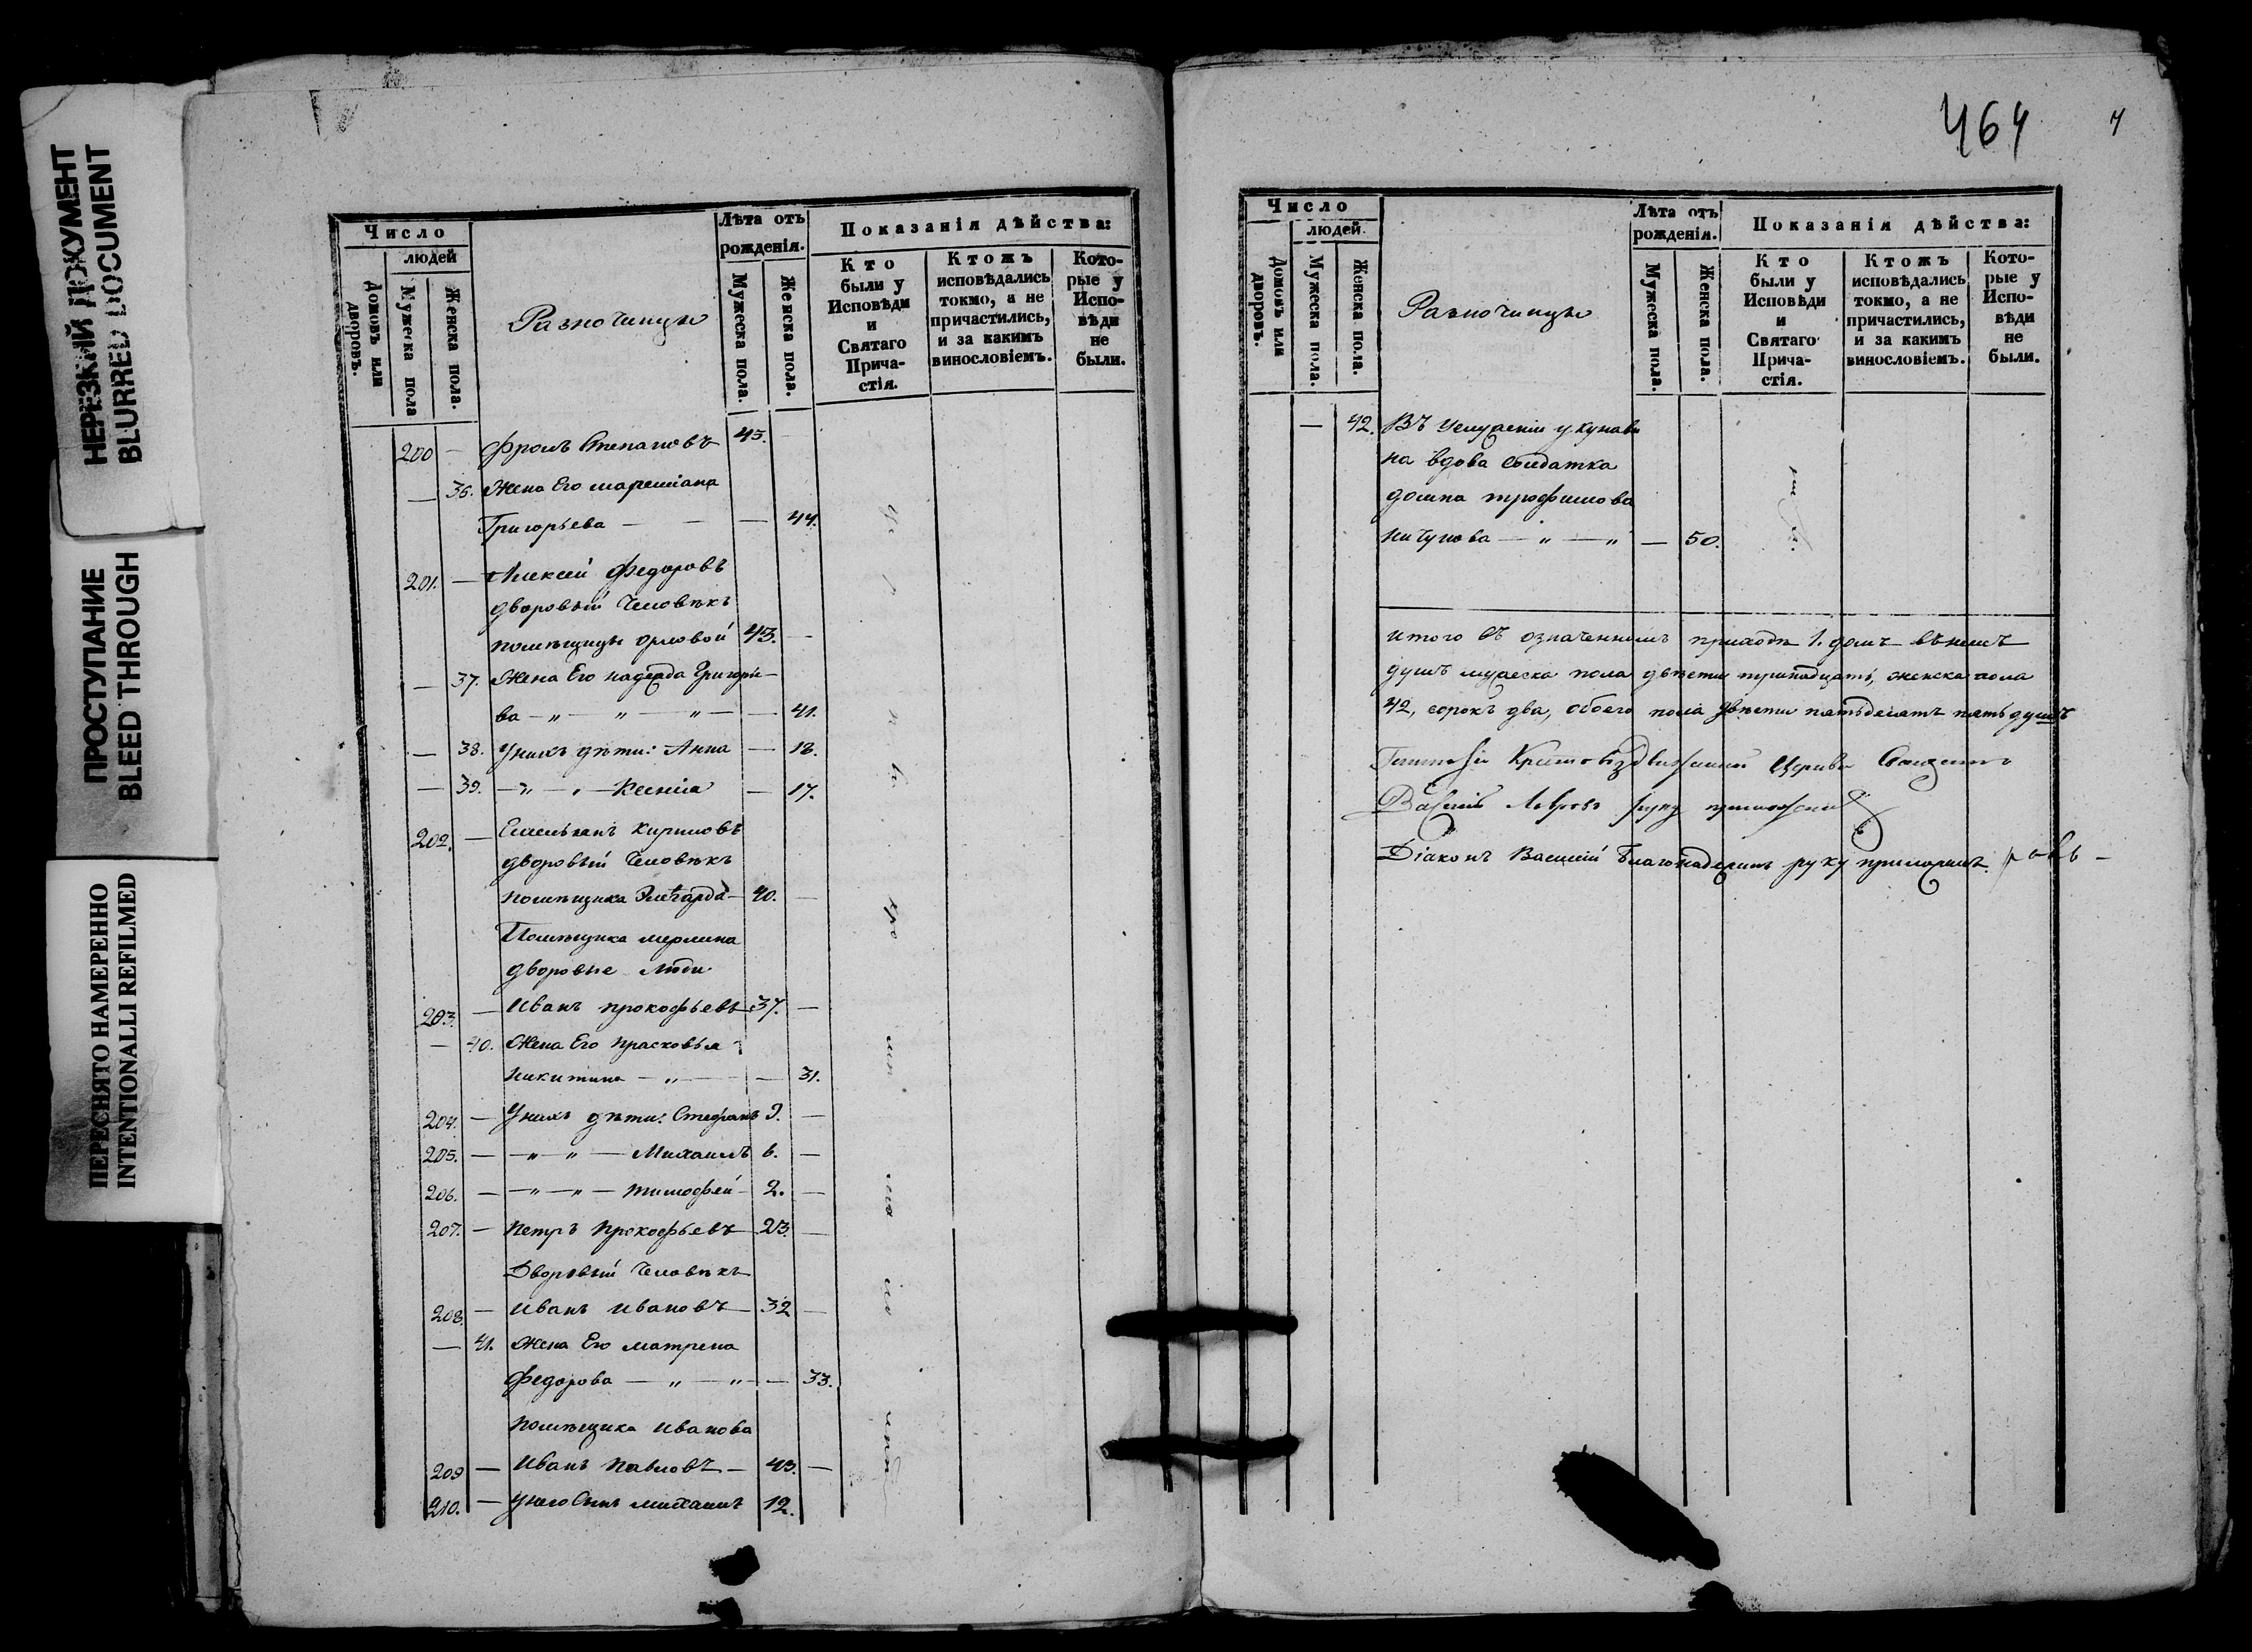 НЕРЕЗКИЙ ДОКУМЕНТ
BLURRED DOCUMENT
ПРОСТУПАНИЕ
BLEED THROUGH
ПЕРЕСНЯТО НАМЕРЕННО
INTENTIONALLI REFILMED
Число
людей
Домовъ или дворовъ.
Мужеска пола
Женска пола.
Разночинцы
Лѣта отъ рожденія.
Мужеска пола.
Женска пола.
Показанія дѣйства:
Кто были у Исповѣди и Святаго Прича-стія.
Ктожъ исповѣдались токмо, а не причастились, и за какимъ винословіемъ.
Кото-рые у Испо-вѣди не были.
200 — Фролъ Степановъ 45.
— 36. Жена Его
Григорьева — — — 44.
201. — Алексей Федоровъ
дворовый Человѣкъ
помѣщицы Орловой 43. —
— 37. Жена Его Надежда Григорье-
ва — „ — „ — „ — — 41.
— 38. У нихъ дѣти: Анна — 18.
— 39. — „ — „ — Ксенія — 17.
202. — Емельянъ Кириловъ
дворовый Человѣкъ
помѣщика — 40. —
Помѣщика Мерлина
дворовые люди
203. — Иванъ Прокофьевъ 37. —
— 40. Жена Его Прасковья
Никитина — „ — — 31.
204. — У нихъ дѣти: Стефанъ 9. —
205. — — „ „ — Михаилъ 6. —
206. — — „ — „ — Тимофей — 2. —
207. — Петръ Прокофьевъ 23. —
Дворовый Человѣкъ
208. — Иванъ Ивановъ — 32 —
— 41. Жена Его Матрена
Федорова — „ — „ — — 33.
помѣщика Иванова
209 — Иванъ Павловъ — 43. —
210. — У него Сынъ Михаилъ 12.
464
Число
людей.
Домовъ или дворовъ.
Мужеска пола.
Женска пола.
Разночинцы
Лѣта отъ рожденія.
Мужеска пола.
Женска пола.
Показанія дѣйства:
Кто были у Исповѣди и Святаго Прича-стія.
Ктожъ исповѣдались токмо, а не причастились, и за какимъ винословіемъ.
Кото-рые у Испо-вѣди не были.
— 42. Въ Услуженіи у
на вдова Солдатка
Домна Трофимова
— „ — „ — 50.
Итого въ означенномъ приходѣ 1. домъ въ немъ
душъ мужеска пола двѣсти тринадцать, женска пола
42, сорокъ два, обоего пола двѣсти пятьдесятъ пять душъ
Крестовоздвиженской Церкви Священникъ
руку приложилъ
Діаконъ Василій Благонадеждинъ руку приложилъ.